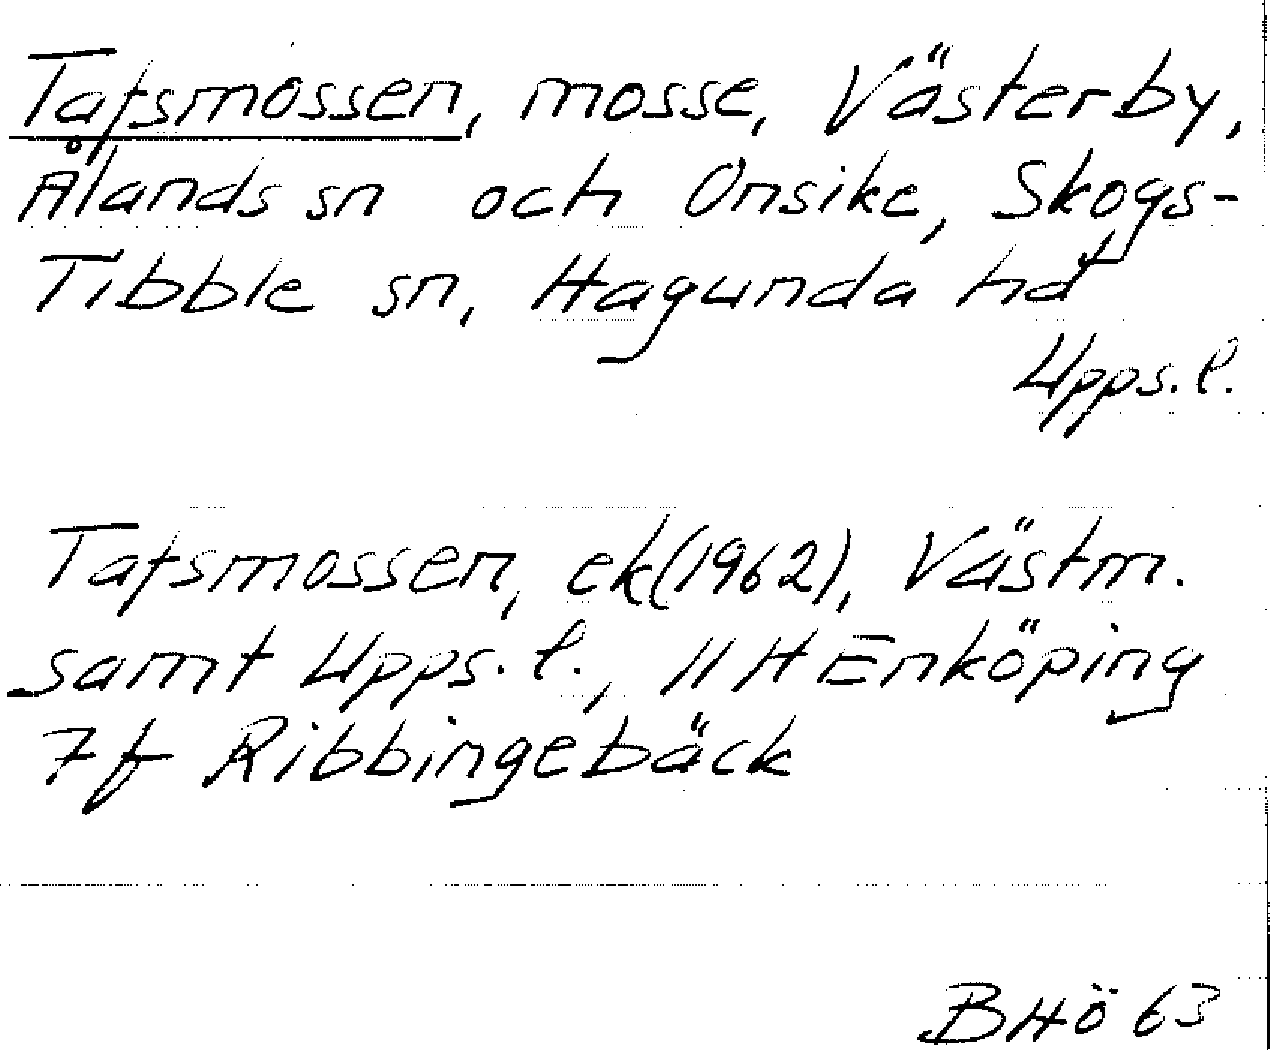 Tafsmossen, mosse, Västerby,
Ålands sn och Onsike, Skogs-
Tibble sn, Hagunda hd
Upps. l.
Tafsmossen, ek(1962), Västm.
samt Upps. l., 11 H Enköping
7f Ribbingebäck
BHÖ 63